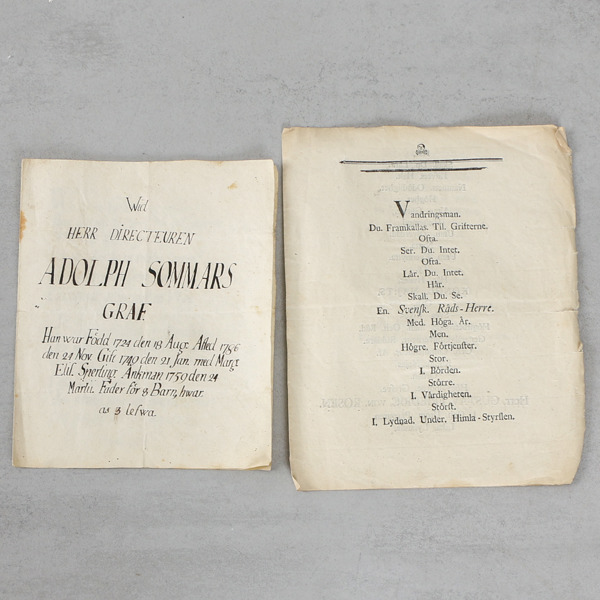 Wid
HERR DIRECTEUREN
ADOLPH SOMMARS
GRAF.
Han war Född 1724 den 13 Aug. Afled 1796
den 24 Nov. Gift 1749 den 21 Jan. med Marg.
Elis. Sperling. Ankman 1750 den 24
Martii. Fader för 8 Barn, hwar-
as 3 lefwa.
2
Vandringsman.
Du. Framkallas. Til. Grifterne.
Ofta.
Ser. Du. Intet.
Ofta.
Lår. Du. Intet.
Hår.
Skall. Du. Se.
En. Svensk. Råds-Herre.
Med. Höga. År.
Men.
Högre. Förtjenster.
Stor.
I. Börden.
Större.
I. Vårdigheten.
Störst.
I. Lydnad. Under. Himla-Styrslen.